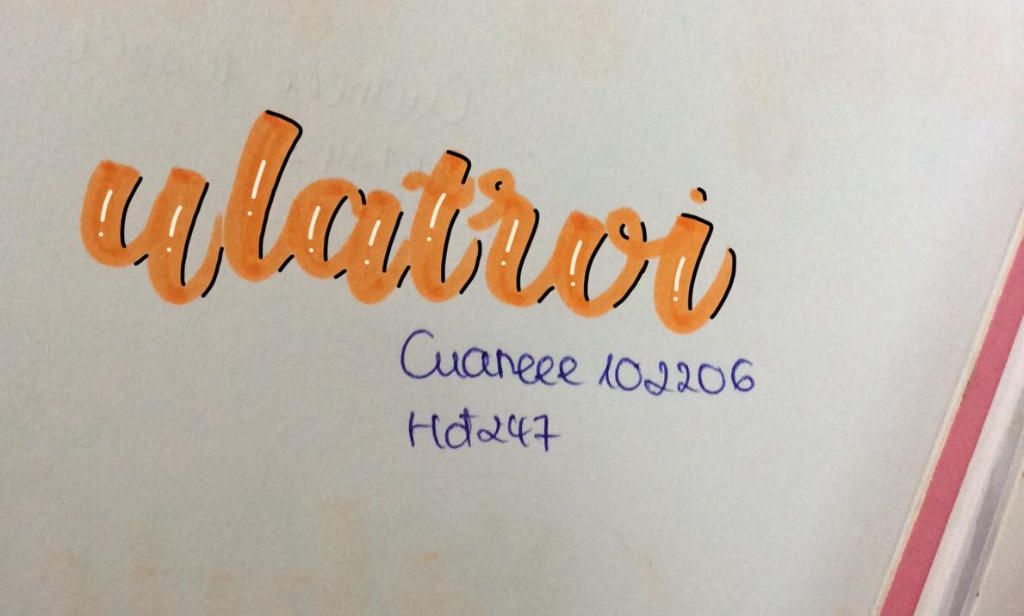 ulatroi
Cuaneee 102206
Hđ247